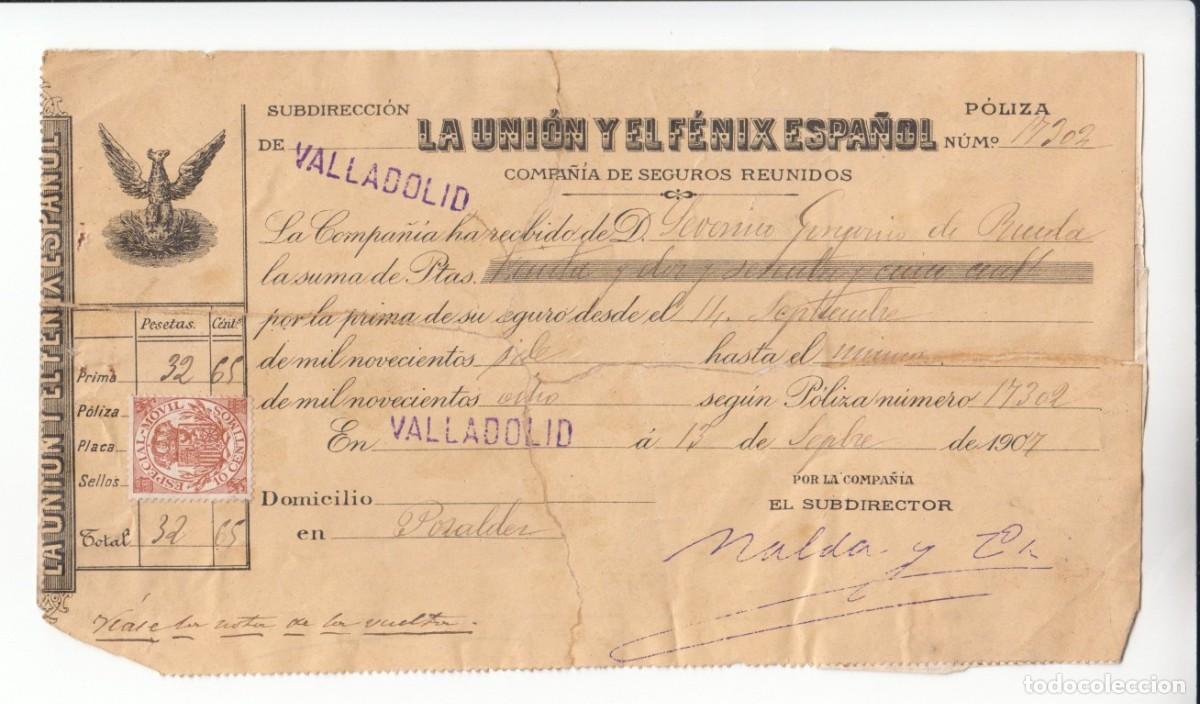 LA UNIÓN Y EL FÉNIX ESPAÑOL
SUBDIRECCIÓN
DE VALLADOLID
LA UNIÓN Y EL FÉNIX ESPAÑOL
PÓLIZA
NÚMº 17302
COMPAÑÍA DE SEGUROS REUNIDOS
La Compañía ha recibido de D. de Rueda
la suma de Ptas. Treinta y dos y sesenta y cinco
por la prima de su seguro desde el 14 Septiembre
de mil novecientos siete hasta el mismo
de mil novecientos ocho según Póliza número 17302
En VALLADOLID á 13 de Sepbre de 1907
POR LA COMPAÑÍA
EL SUBDIRECTOR
Domicilio
en Pozaldez
Nalda y Cª
Pesetas. Cénts
Prima 32 65
Póliza
Placa
Sellos
Total 32 65
ESPECIAL MÓVIL
10 CENTIMOS
Véase la nota de la vuelta.
todocoleccion